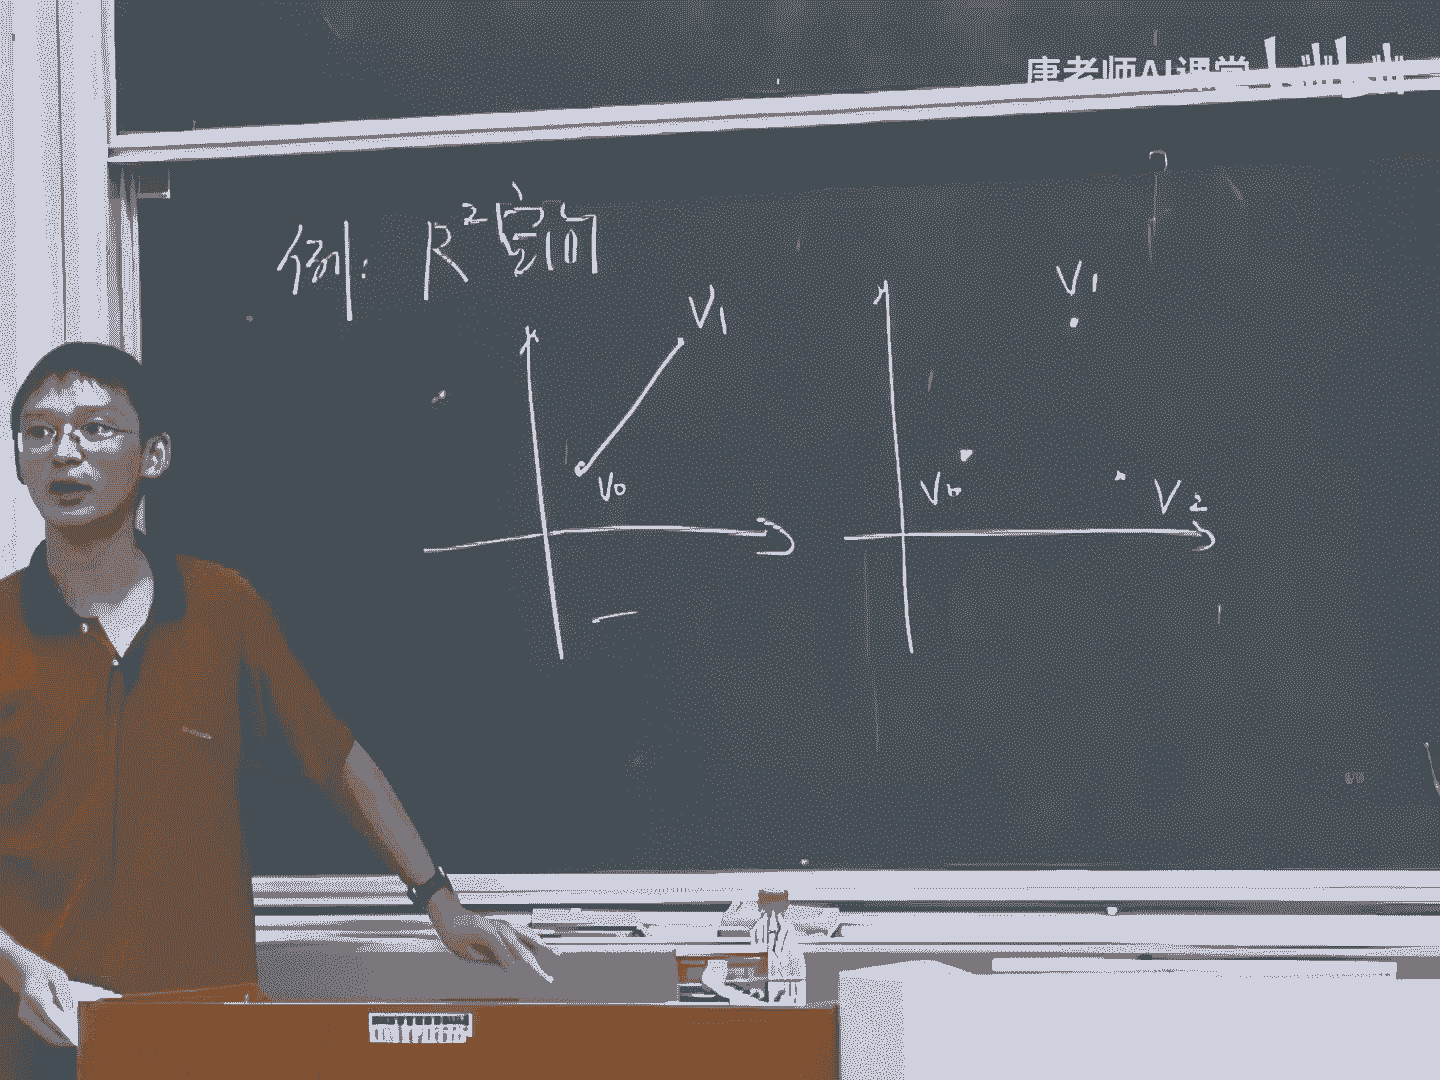 唐老师AI课堂
例: R²空间
V₁
V₀
V₁
V₂